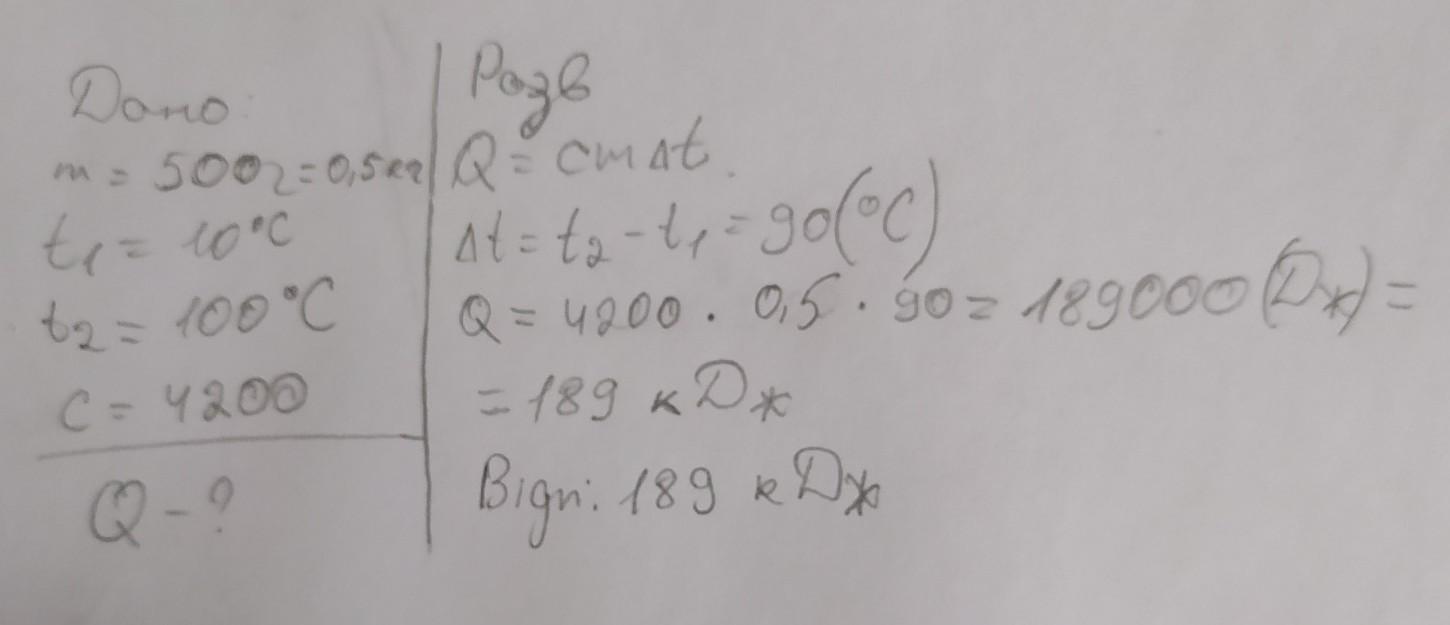 Дано:
m = 500г = 0,5кг
t₁ = 10°C
t₂ = 100°C
c = 4200
Q - ?
Розв
Q = cmΔt.
Δt = t₂ - t₁ = 90(°C)
Q = 4200 · 0,5 · 90 = 189000 (Дж) =
= 189 кДж
Відп: 189 кДж